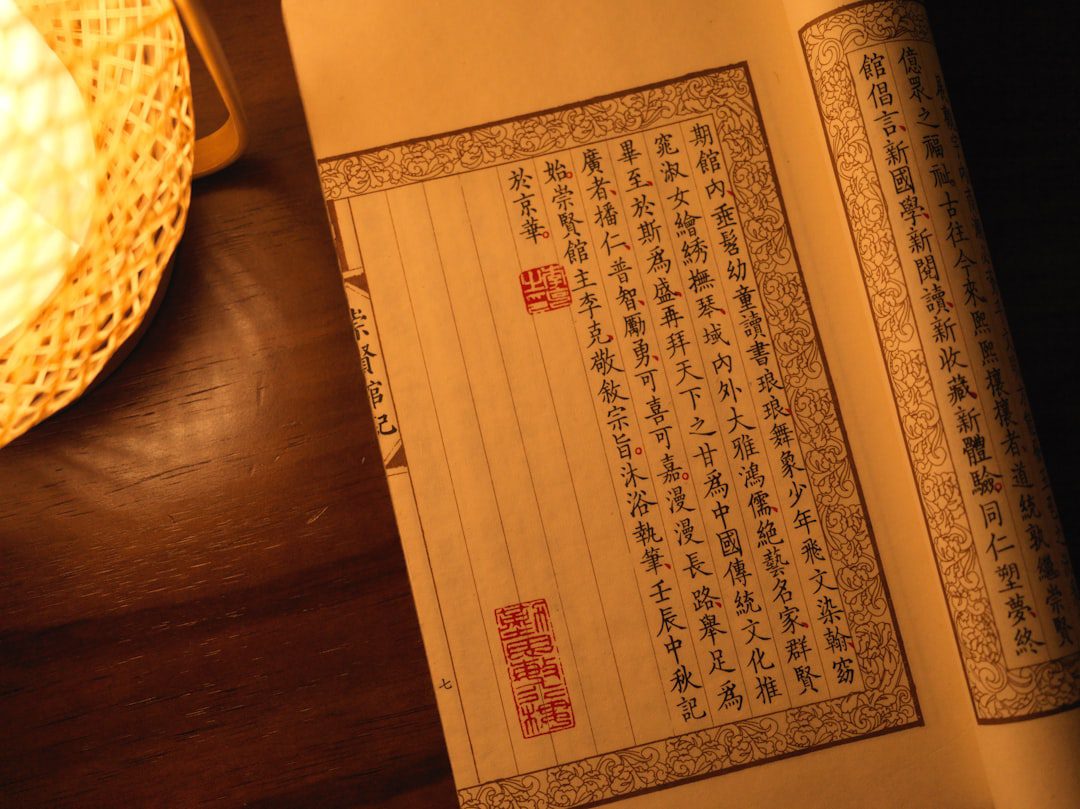 億眾之福祉、古往今來、熙熙攘攘者、道統敦繼、崇賢
館倡言、新國學、新閱讀、新收藏、新體驗。同仁塑夢、終
期館內、垂髫幼童讀書琅琅、舞象少年飛文染翰、窈
窕淑女繪綉撫琴、域內外大雅鴻儒、絶藝名家、群賢
畢至、於斯爲盛、再拜天下之甘爲中國傳統文化推
廣者、播仁、普智、勵勇、可喜可嘉。漫漫長路、舉足爲
始。崇賢館主李克、敬敘宗旨。沐浴執筆、壬辰中秋記
於京華。
崇賢館記
七